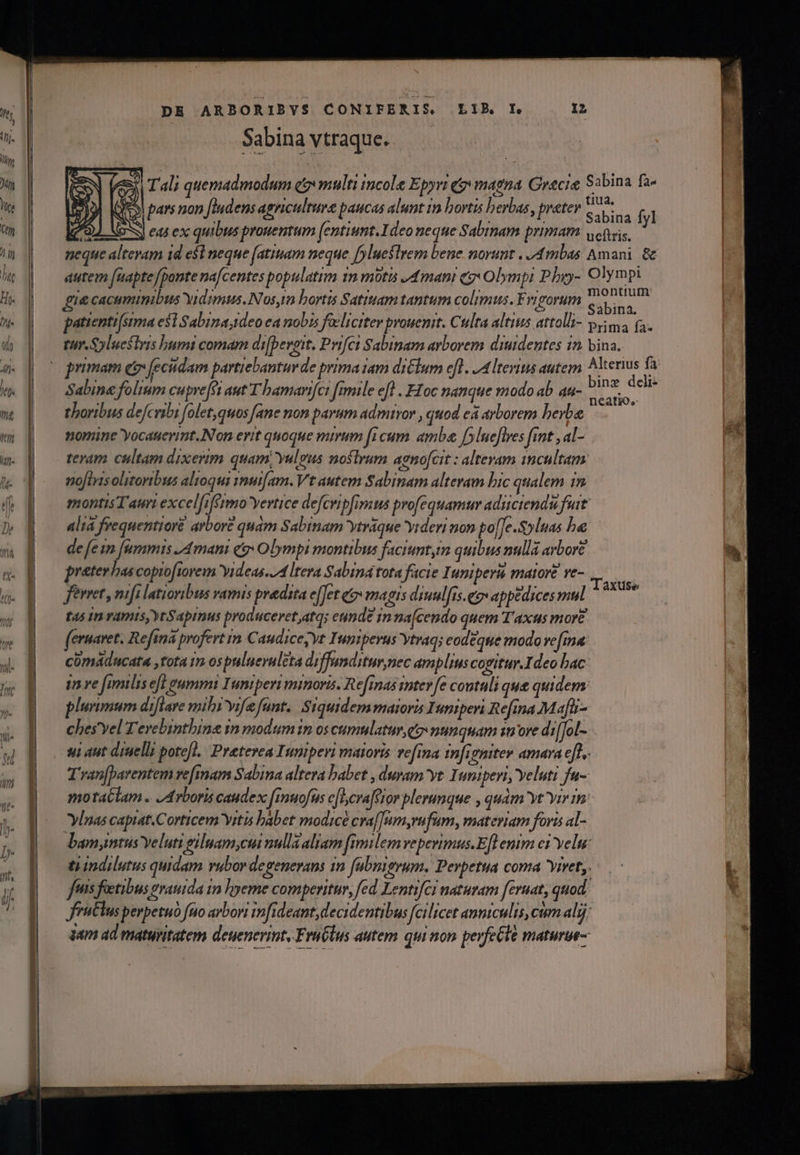 DE ARBORIBVS CONIFERIS. LIB. I. 12
Sabina vtraque.
Itali quemadmodum & multi incolæ Epyri & magna Græciæ
pars non studens agriculturæ paucas alunt in hortis herbas, præter
eas ex quibus prouentum sentiunt. Ideo neque Sabinam primam
neque alteram id est neque satiuam neque syluestrem bene norunt. Ambas
autem suapte sponte nascentes populatim in mõtis Amani & Olympi Phry-
giæ cacuminibus vidimus. Nos, in hortis Satiuam tantum colimus. Frigorum
patientissima est Sabina, ideo ea nobis fœliciter prouenit. Culta altius attolli-
tur. Syluestris humi comam dispergit. Prisci Sabinam arborem diuidentes in
primam & secũdam partiebantur de prima iam dictum est. Alterius autem
Sabinæ folium cupressi aut Thamarisci simile est. Hoc nanque modo ab au-
thoribus describi solet, quos sane non parum admiror, quod eã arborem herbæ
nomine vocauerint. Non erit quoque mirum si cum ambæ syluestres sint, al-
teram cultam dixerim quam vulgus nostrum agnoscit: alteram incultam
nostris olitoribus alioqui inuisam. Vt autem Sabinam alteram hic qualem in
montis Tauri excelsissimo vertice descripsimus prosequamur adijciendũ fuit
aliã frequentiorẽ arborẽ quàm Sabinam vtrãque videri non posse. Syluas hæ
de se in summis Amani & Olympi montibus faciunt, in quibus nullã arborẽ
præter has copiosiorem videas. Altera Sabina tota facie Iuniperũ maiorẽ re-
ferret, nisi latioribus ramis prædita esset & magis diuulsis. & appẽdices mul
tas in ramis, vt Sapinus produceret, atq; eundẽ in nascendo quem Taxus morẽ
seruaret. Resinã profert in Caudice, vt Iuniperus vtraq; eodẽque modo resina
cõmãducata, tota in os puluerulẽta diffunditur, nec amplius cogitur. Ideo hac
in re similis est gummi Iuniperi minoris. Resinas inter se contuli quæ quidem
plurimum distare mihi visæ sunt. Siquidem maioris Iuniperi Resina Masti-
ches vel Terebinthinæ in modum in os cumulatur, & nunquam in ore dissol-
ui aut diuelli potest. Præterea Iuniperi maioris resina insigniter amara est,
Transparentem resinam Sabina altera habet, duram vt Iuniperi, veluti fu-
mo tactam. Arboris caudex sinuosus est, crassior plerunque, quàm vt vir in
vlnas capiat. Corticem vitis habet modicè crassum, rufum, materiam foris al-
bam, intus veluti giluam, cui nullã aliam similem reperimus. Est enim ei velu
ti indilutus quidam rubor degenerans in subnigrum. Perpetua coma viret,
suis fœtibus grauida in hyeme comperitur, sed Lentisci naturam seruat, quod
fructus perpetuò suo arbori insideant, decidentibus scilicet anniculis, cùm alij
iam ad maturitatem deuenerint. Fructus autem qui non perfectè maturue-
Sabina fa-
tiua,
Sabina syl
uestris.
Amani &
Olympi
montium
Sabina.
Prima sa-
bina.
Alterius sa
binæ deli-
neatio.
Taxuse